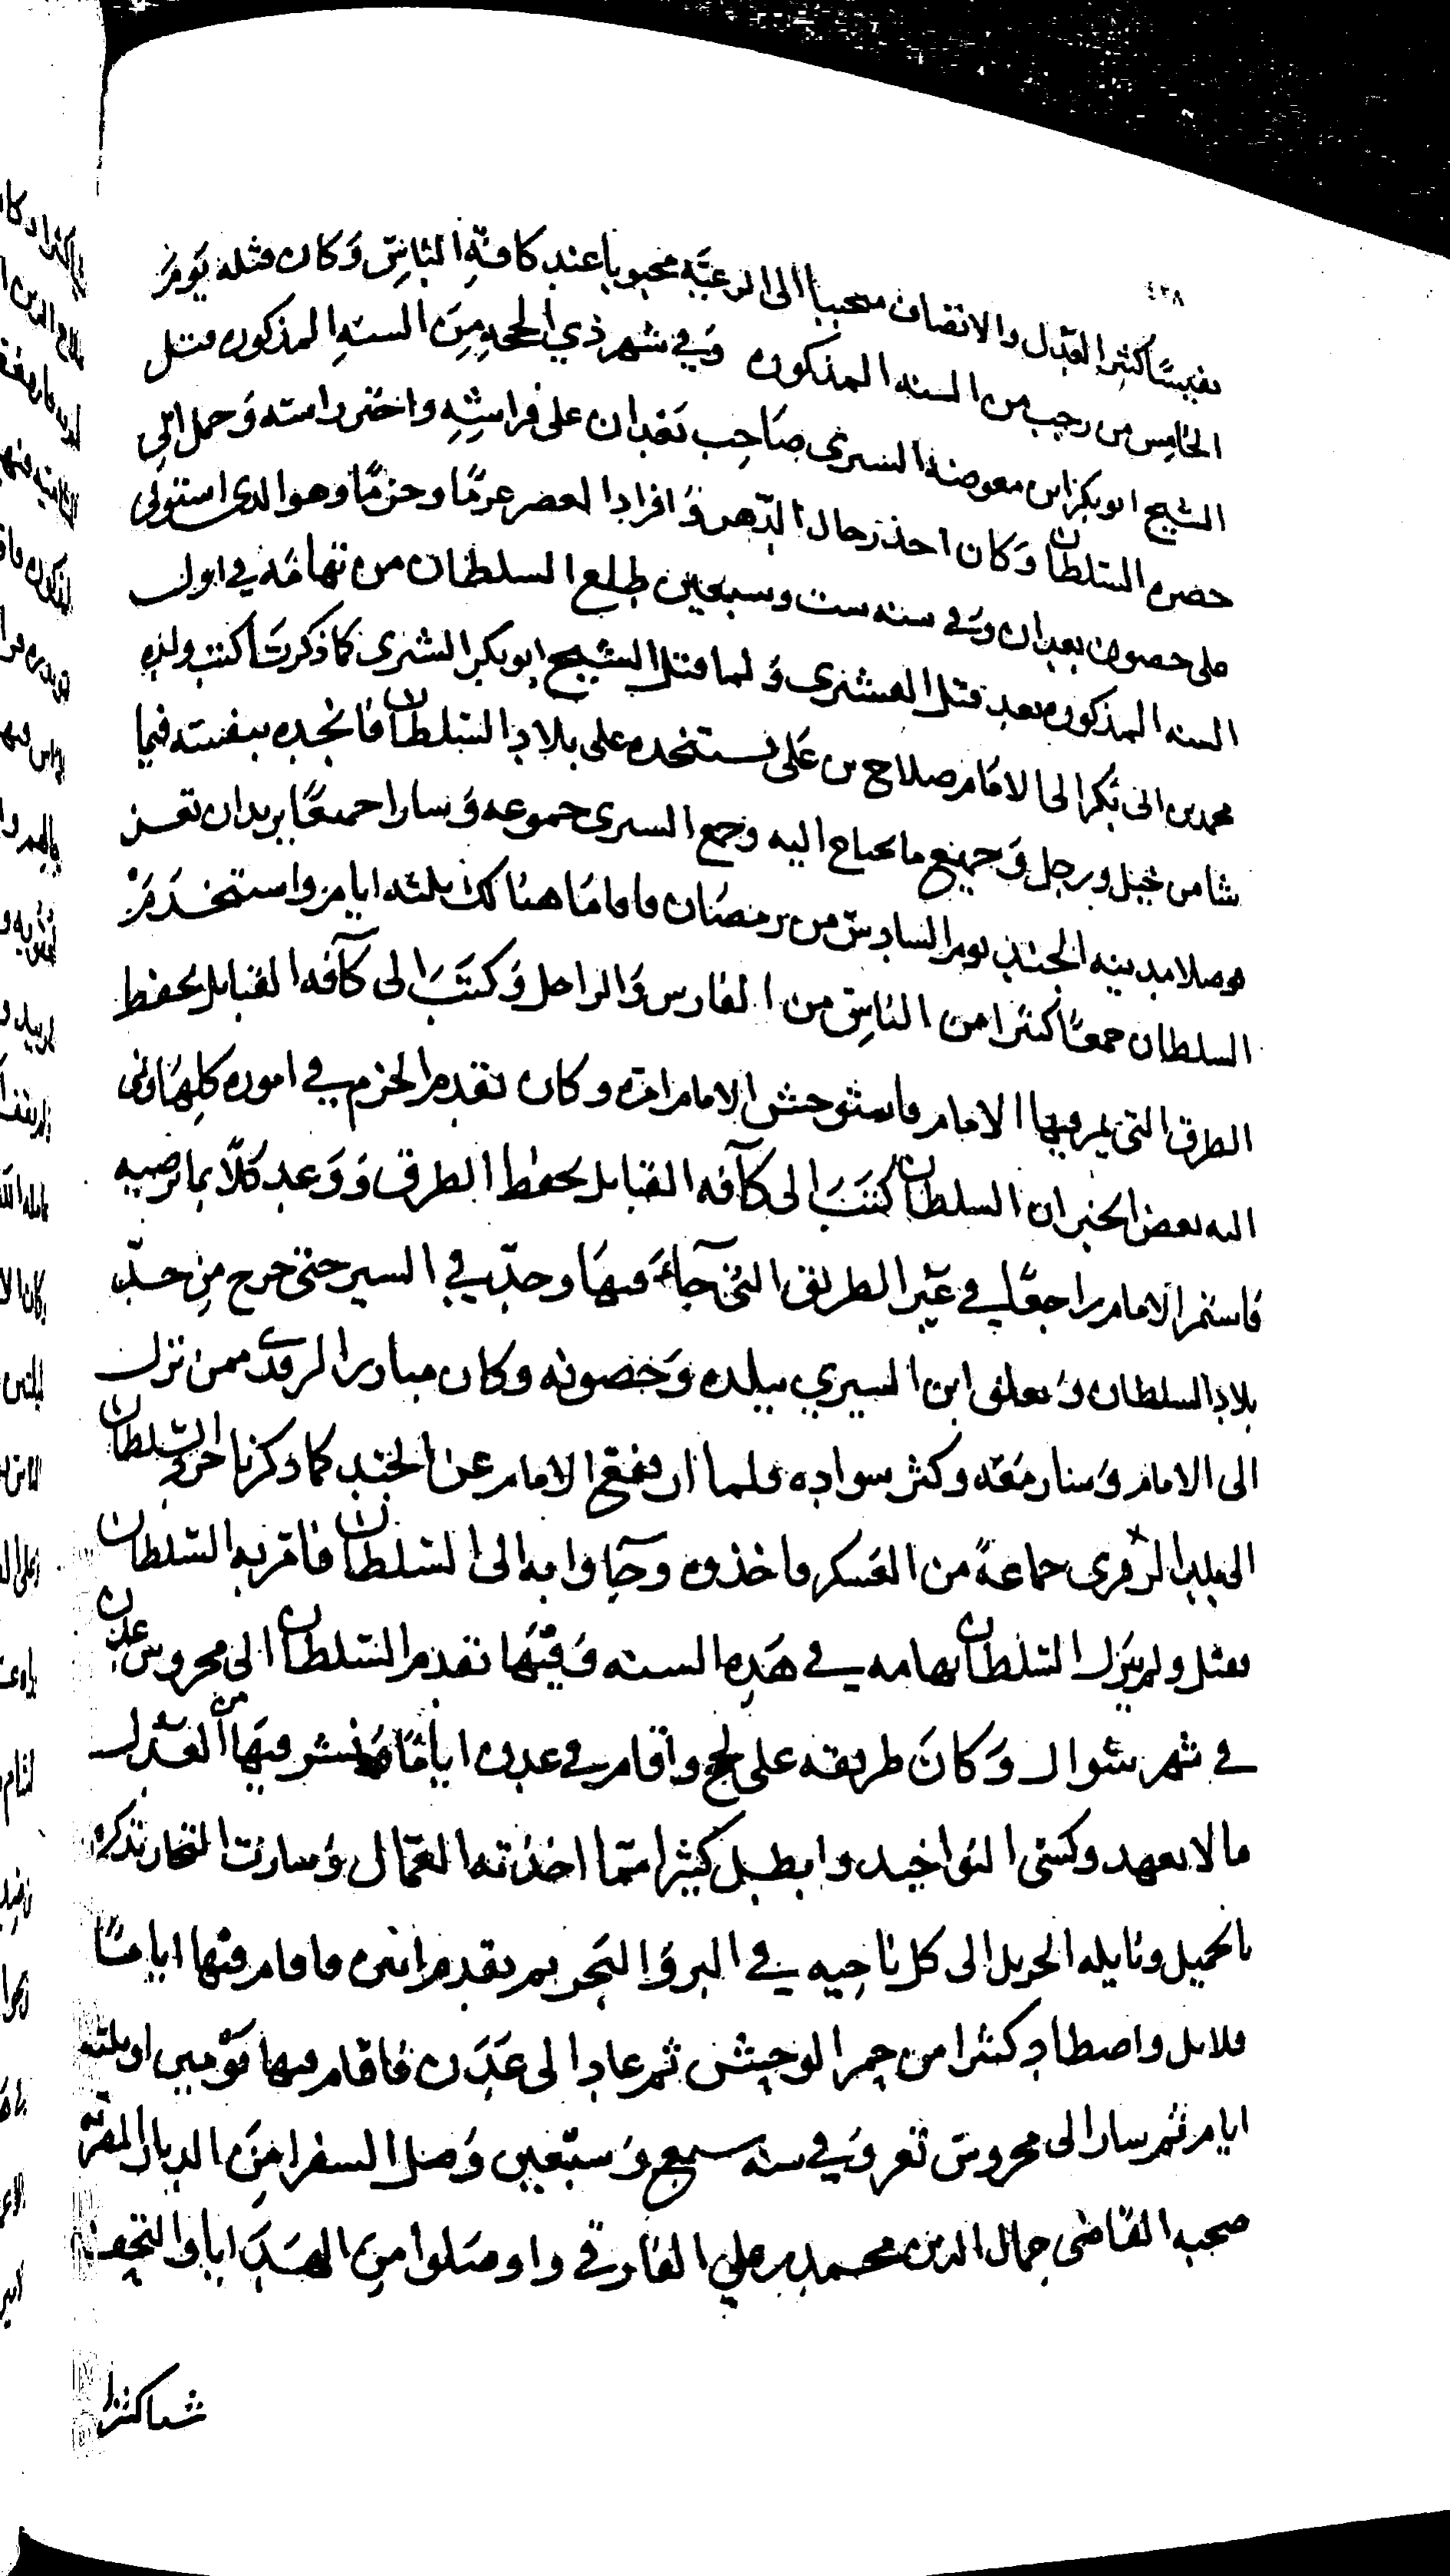 ٤٣٨
نفيسًا كثير العدل والانصاف متحببا الى الرعيّه محبوبا عند كافة الناس وكان قتله يوم
الخامس من رجب من السنه المذكوره وفي شهر ذي الحجه من السنه المذكوره قتل
الشيخ ابو بكر ابن معوضه السيري صاحب بعدان على فراشه واحتز راسه وحمل الى
حضره السلطان وكان احد رجال الدهر وافراد العصر عزمًا وحزمًا وهو الدى استولى
على حصون بعدان وفي سنه ست وسبعين طلع السلطان من تهامه في اول
السنه المذكوره بعد قتل السيري ولما قتل الشيخ ابو بكر السيري كما ذكرت كتب ولده
محمد بن ابى بكر الى الامام صلاح بن على يستنجده على بلاد السلطان فانجده بنفسه فيما
شا من خيل ورجل وجميع ما يحتاج اليه وجمع السيرى جموعه وسارا جميعًا يريدان تعز
فوصلا مدينه الجند يوم السادس من رمضان فاقاما هنالك ثلثه ايام واستخدم
السلطان جمعًا كثيرا من الناس من الفارس والراجل وكتب الى كآفه القبايل بحفظ
الطرق التى يمر فيها الامام فاستوحش الامام امره وكان يقدم الحزم في اموره كلها ونمى
اليه بعض الخبر ان السلطان كتب الى كآفه القبايل بحفظ الطرق ووعد كلّا بما يرضيه
فاستمر الامام راجعًا في غير الطريق التى جآء فيها وجدّ في السير حتى خرج من حدّ
بلاد السلطان وتعلق ابن السيري ببلده وحصونه وكان مبادرا لرفدى ممن نزل
الى الامام وسار معه وكثر سواده فلما ارتفع الامام عن الجند كما ذكرنا جرد السلطان
الى بلد الرفدى جماعةً من العسكر فاخذوه وجاوا به الى السلطان فامر به السلطان
فقتل ولم ينزل السلطان تهامه في هذه السنه وفيها تقدم السلطان الى محروس عدن
في شهر شوال وكان طريقه على لحج واقام في عدن ايامًا نشر فيها من العدل
ما لا يعهد وكسى النواخيد وابطل كثيرا مما احدثه العمال وسارت التجار تذكره
بالجميل ونايله الجزيل الى كل ناحيه في البر والبحر ثم تقدم ابين فاقام فيها ايامًا
قلايل واصطاد كثيرا من حمر الوحش ثم عاد الى عدن فاقام فيها يومين او ثلثه
ايام ثم سار الى محروس تعز وفي سنه سبع وسبعين وصل السفرا من الديار المصريه
صحبه القاضى جمال الدين محمد بن علي الفارقي واوصلوا من الهدايا والتحف
شيا كثيرا